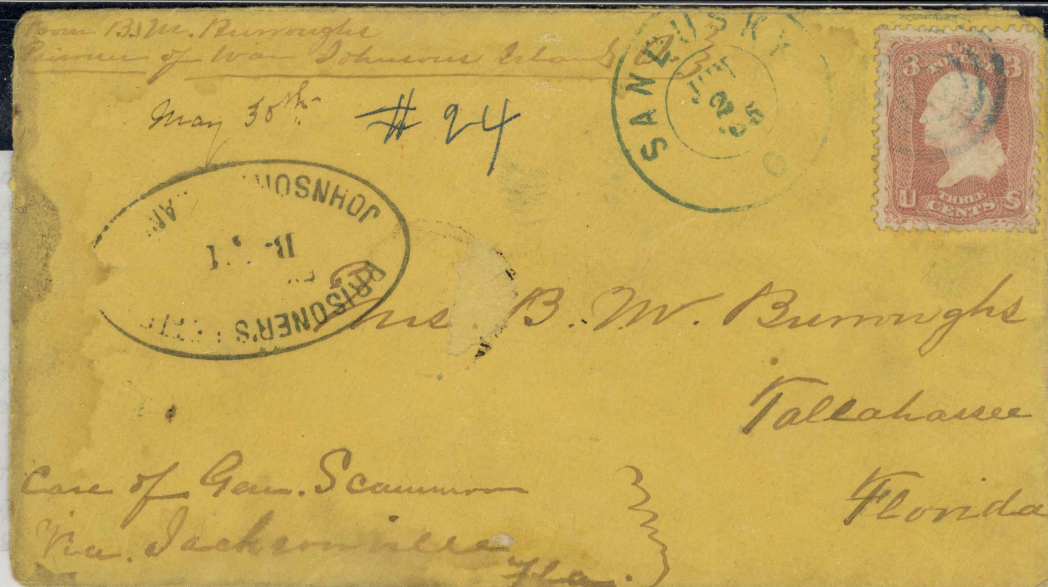 From B. W. Burroughs
Prisoner of War Johnsons Island O.
May 30th
# 24
SANDUSKY O
JUN 2 65
3 U.S. POSTAGE 3
U THREE CENTS S
JOHNSON
PRISONER'S
Mrs. B. W. Burroughs
Tallahassee
Florida
Care of Gen. Scammon
Via. Jacksonville
Fla.